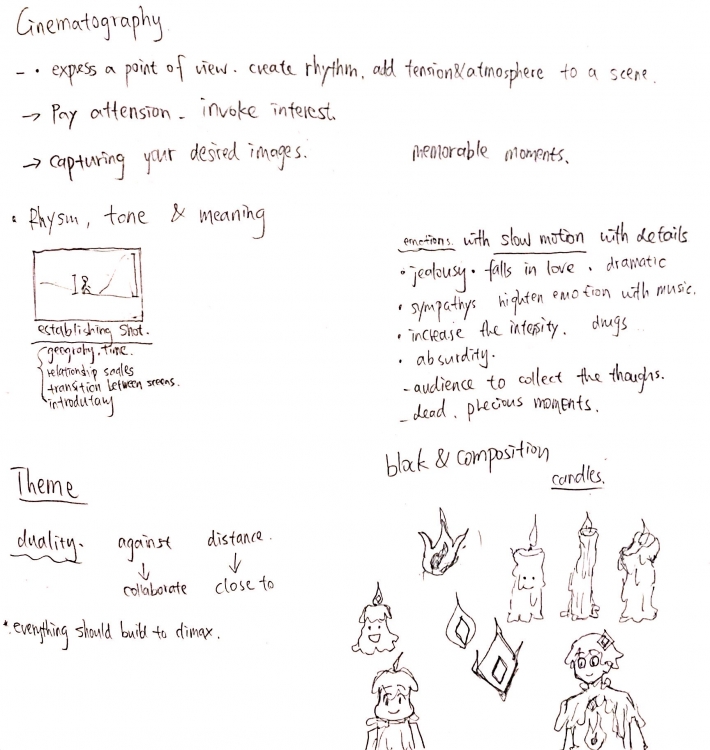 Cinematography
- · express a point of view. create rhythm, add tension&atmosphere to a scene.
→ Pay attension - invoke interest.
→ capturing your desired images.
memorable moments.
· Rhysm, tone & meaning
establishing shot.
geograhy. time.
relationship scales
transition between sreens.
introdutary
emotions. with slow motion with details
· jealousy · falls in love . dramatic
· sympathys highten emotion with music.
· increase the intesity. drugs
· absurdity.
- audience to collect the thoughs.
- dead. precious moments.
block & composition
candles.
Theme
duality. against distance.
↓ ↓
collaborate close to
*.everything should build to climax.